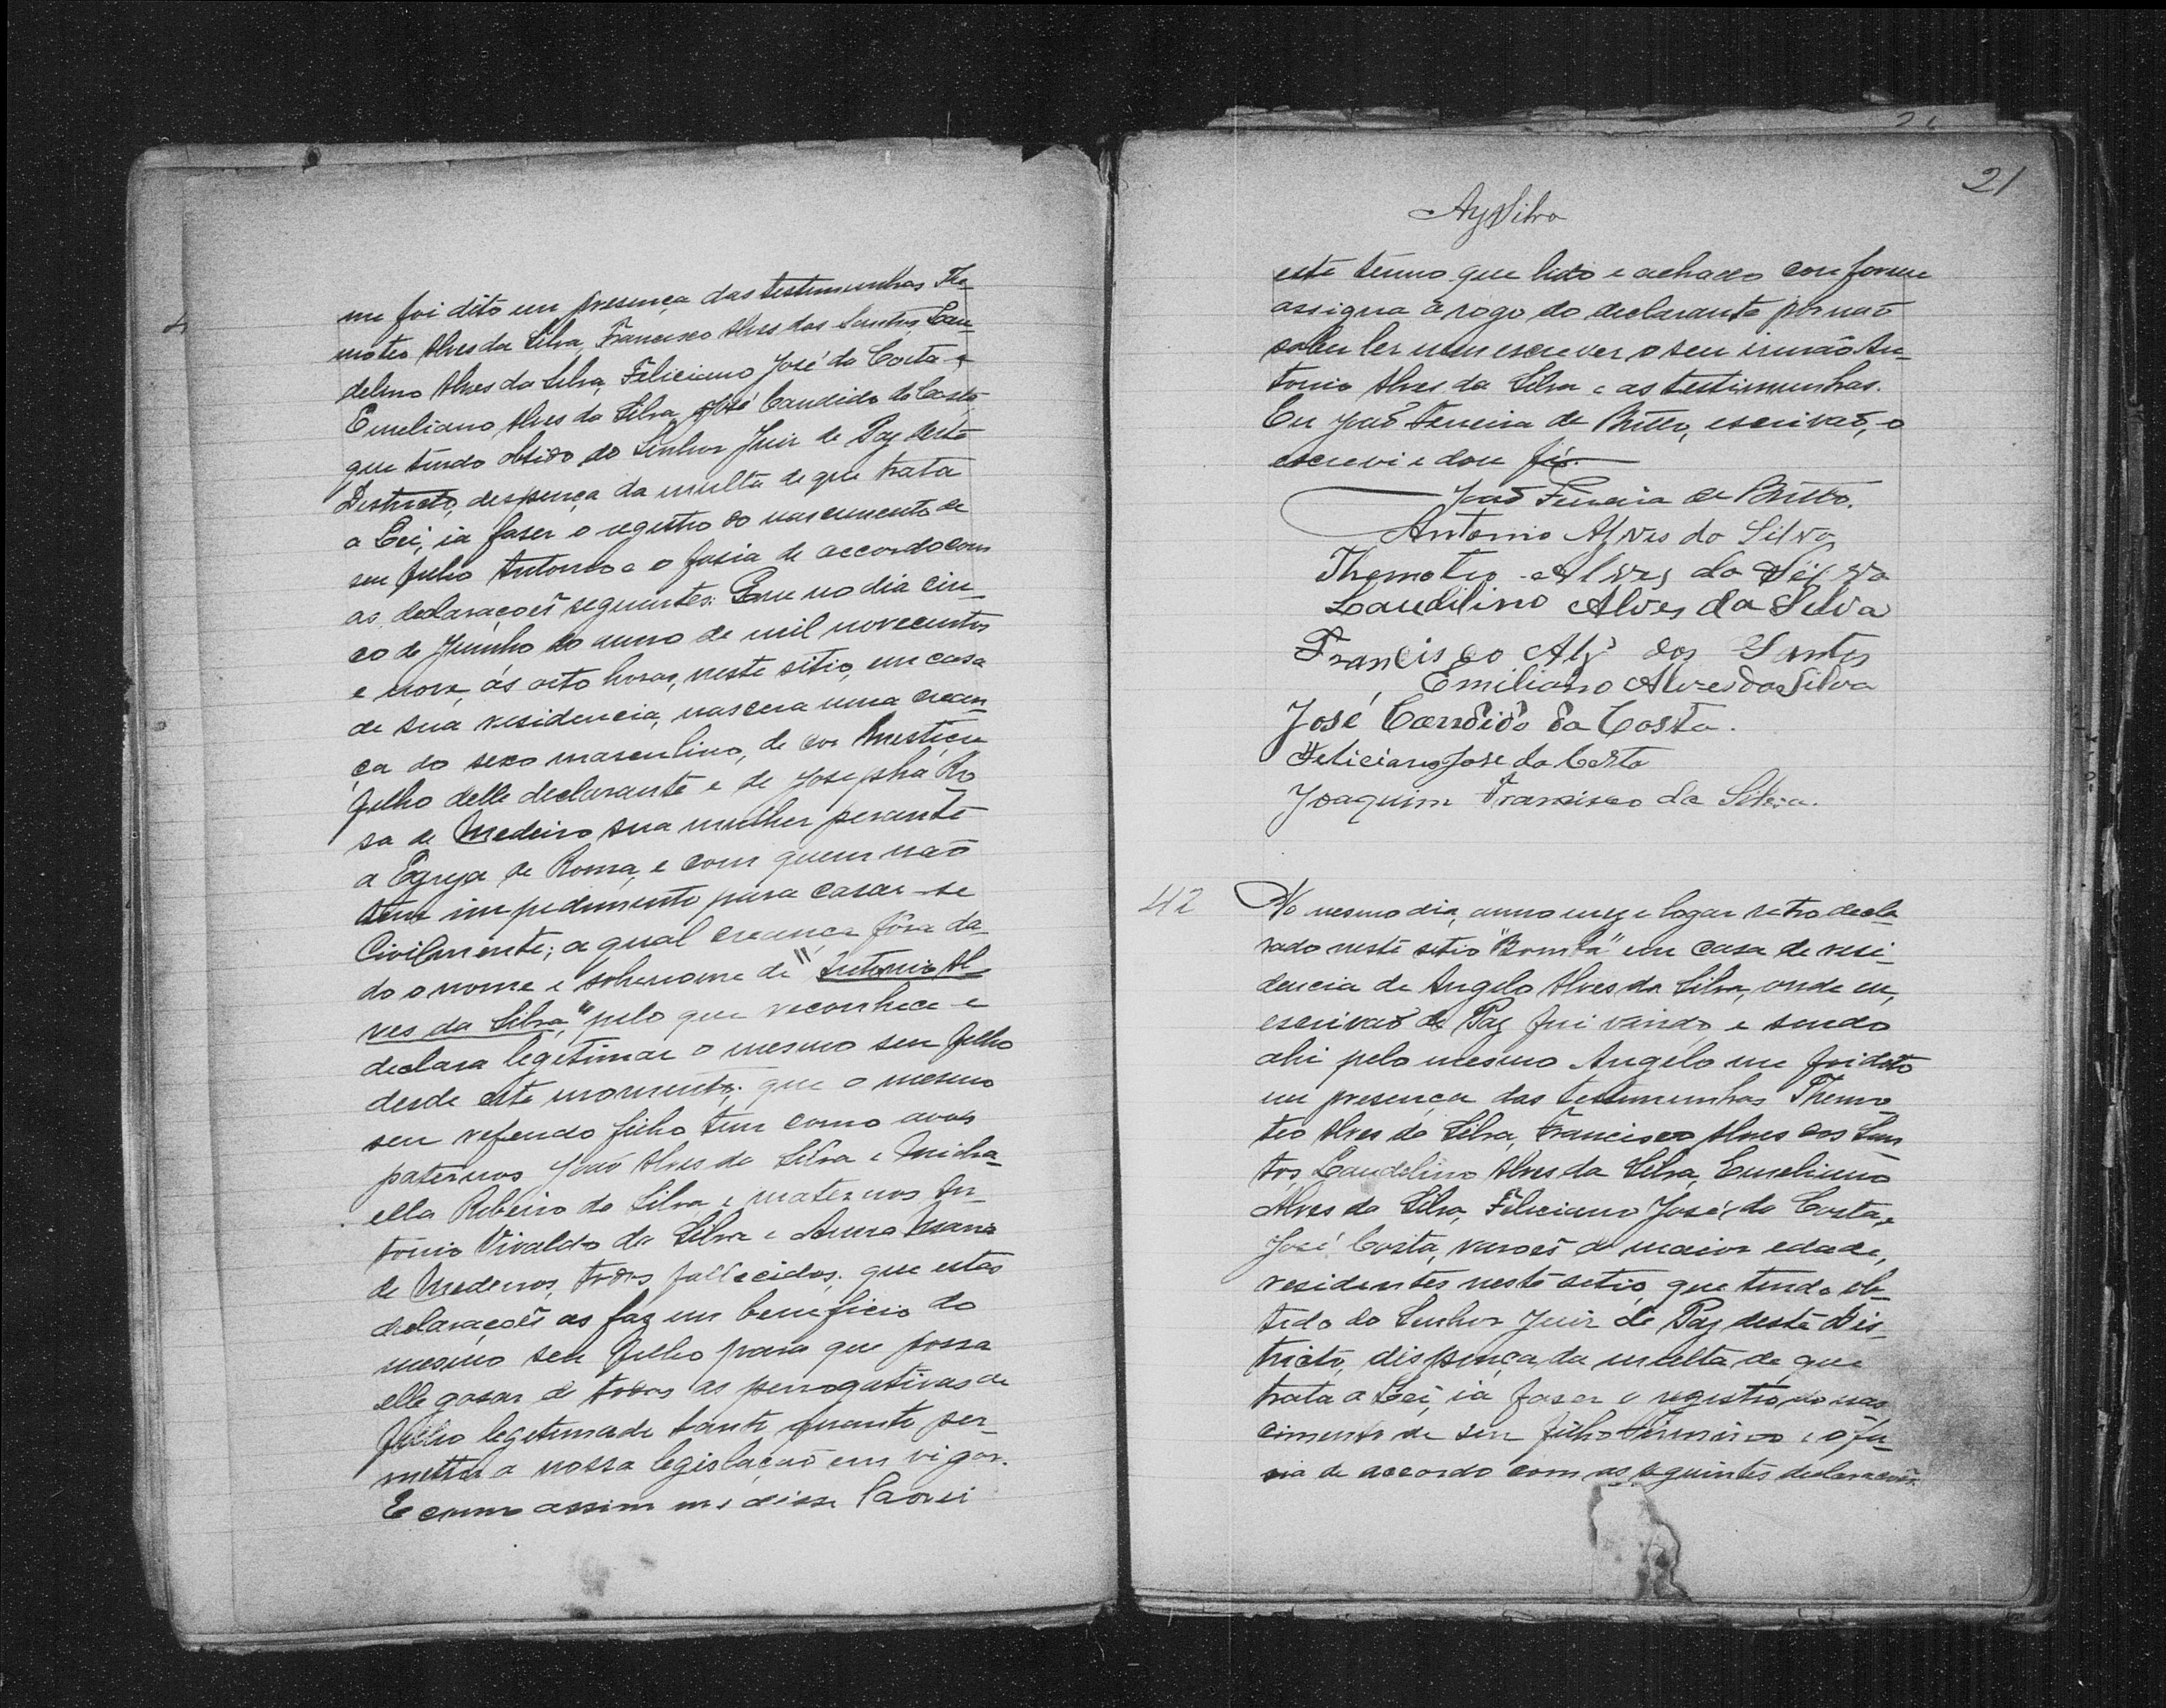 me foi dito em presença das testemunhas The-
moteo Alves da Silva, Francisco Alves dos Santos, Lau-
delino Alves da Silva, Feliciano José da Costa e
Emeliano Alves da Silva, José Candido da Costa
que tendo obtido do Senhor Juiz de Paz deste
Districto, despença da multa de que trata
a Lei, ia faser o registro do nascimento de
seu filho Antonio e o fasia de accordo com
as declarações seguintes: Que no dia cin-
co de Junho do anno de mil novecentos
e nove, ás oito horas, neste sitio, em casa
de sua residencia, nascera uma crean-
ça do sexo masculino, de cor mestiça
filho delle declarante e de Josepha Ro
sa de Medeiro sua mulher perante
a Egreja de Roma, e com quem não
tem impedimento para casar-se
Civilmente; a qual creança fôra da-
do o nome e sobrenome de "Antonio Al-
ves da Silva," pelo que reconhece e
declara legitimar o mesmo seu filho
desde este momento; que o mesmo
seu referido filho tem como avós
paternos João Alves da Silva e Micha-
ella Ribeiro da Silva e maternos An-
tonio Vivaldo da Silva e Anna Maria
de Medeiros, todos fallecidos; que estas
declarações as faz em beneficio do
mesmo seu filho para que possa
elle gosar de todas as perrogativas de
filho legitimado tanto quanto per-
mittir a nossa legislação em vigor.
E como assim me disse lavrei
21
Az Silva
este termo que lido e achado conforme
assigna a rogo do declarante por não
saber ler nem escrever o seu irmão An-
tonio Alves da Silva e as testimunhas.
Eu João Ferreira de Britto, escrivão, o
escrevi e dou fé.
João Ferreira de Britto.
Antonio Alves da Silva
Themoteo Alves da Silva
Laudilino Alves da Silva
Francisco Alz dos Santos
Emiliano Alves da Silva
José Candido da Costa.
Feliciano Jose da Costa
Joaquim Francisco da Silva.
42 No mesmo dia, anno mez e logar retro decla
rado neste sitio "Bomba" em casa de resi-
dencia de Angelo Alves da Silva, onde eu,
escrivão de Paz fui vindo, e sendo
ahi pelo mesmo Angelo me foi dito
em presença das testemunhas Themo
teo Alves da Silva, Francisco Alves dos San
tos, Laudelino Alves da Silva, Emeliano
Alves da Silva, Feliciano José da Costa, e
José Costa, varões de maior edade,
residentes neste sitio, que tendo ob-
tido do Senhor Juiz de Paz deste Dis-
tricto, dispença da multa de que
trata a Lei, ia faser o registro do nas
cimento de seu filho Firmino e o fa-
sia de accordo com as seguintes declarações.